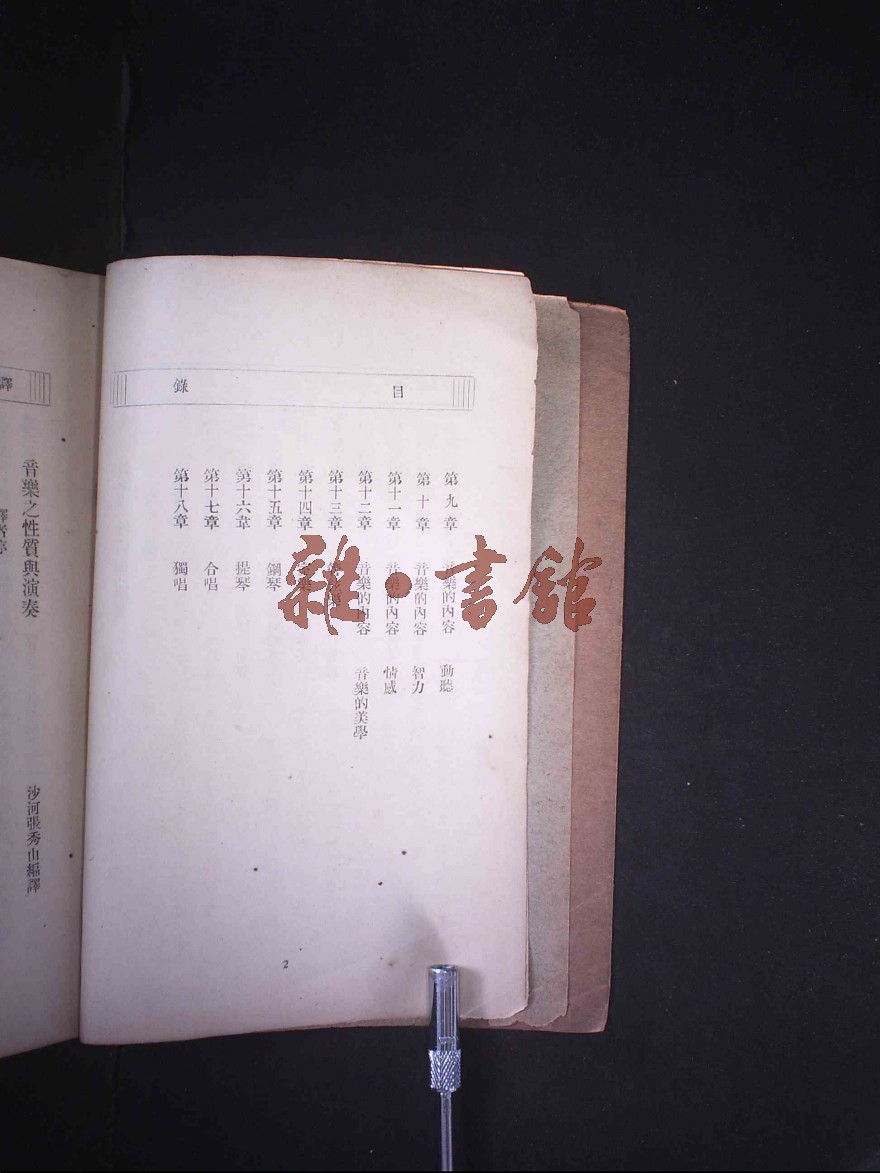 目錄
第九章 音樂的內容 動聽
第十章 音樂的內容 智力
第十一章 音樂的內容 情感
第十二章 音樂的內容 音樂的美學
第十三章
第十四章
第十五章 鋼琴
第十六章 提琴
第十七章 合唱
第十八章 獨唱
2
音樂之性質與演奏
沙河張秀山編譯
譯者序
雜·書館